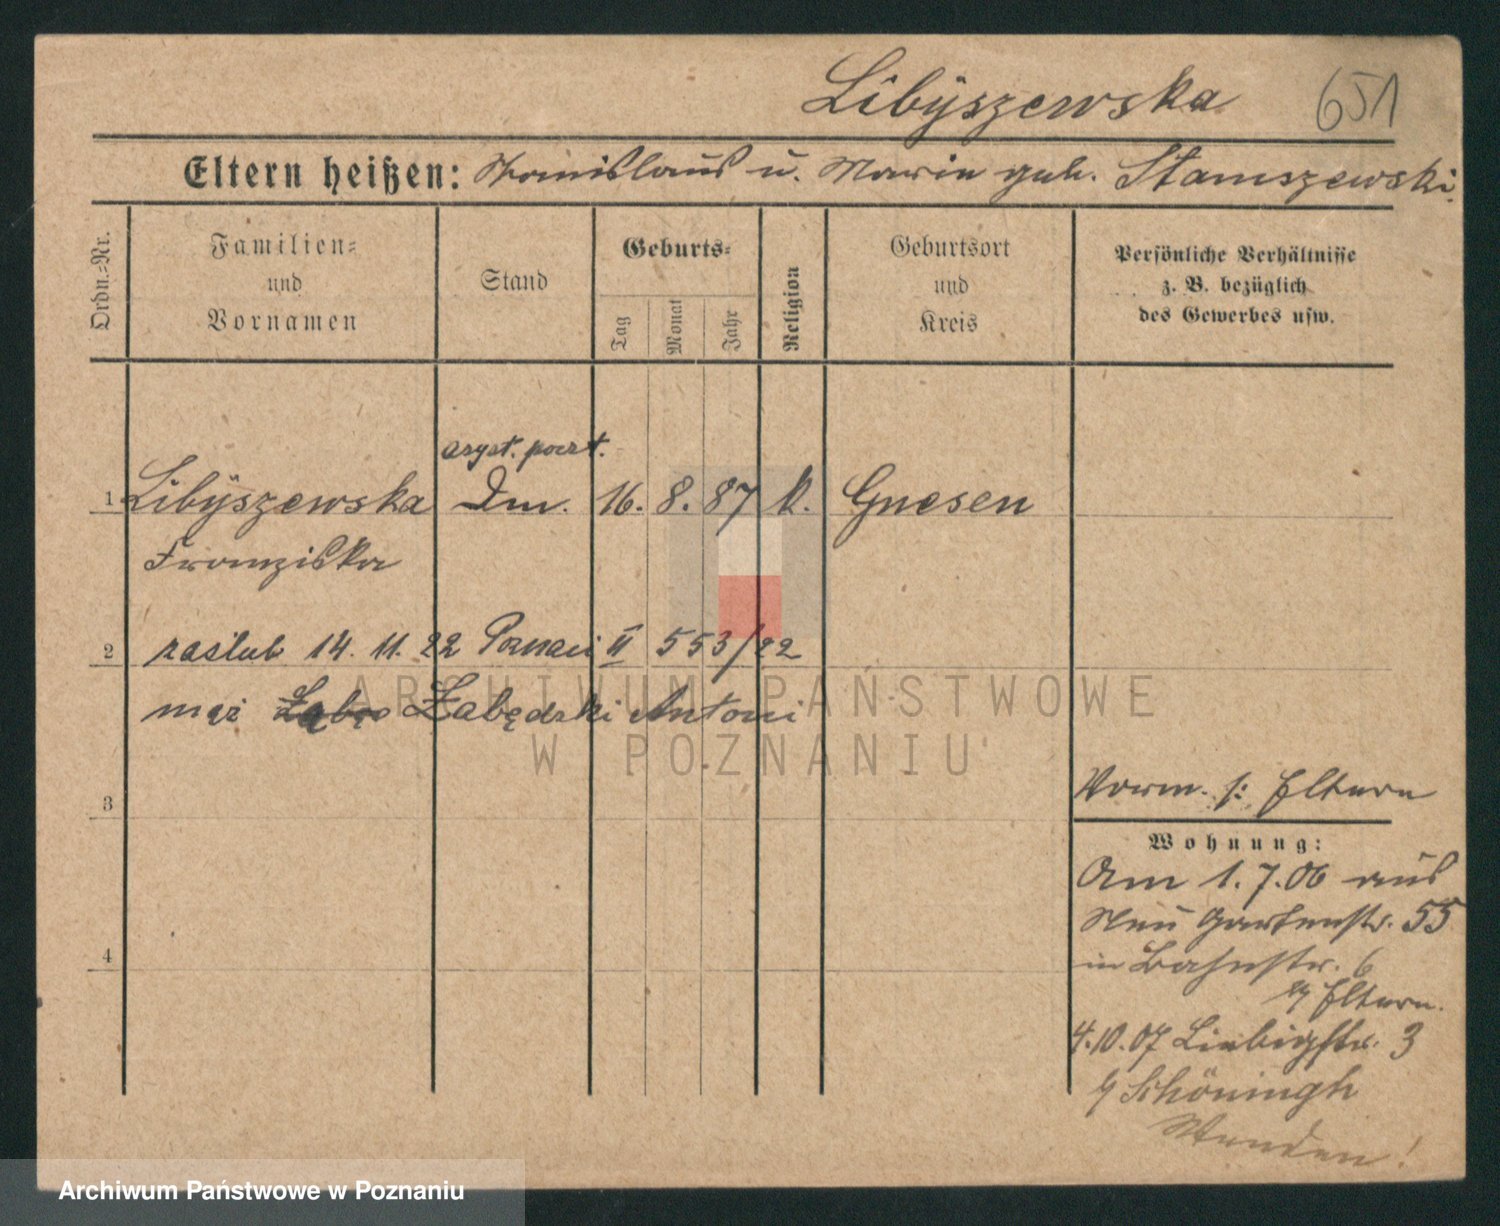 Libÿszewska 651
Eltern heißen: Stanislaus u. Marie geb. Staniszewski.
Ordn.-Nr.
Familien-
und
Vornamen
Stand
Geburts-
Tag
Monat
Jahr
Religion
Geburtsort
und
Kreis
Persönliche Verhältnisse
z. B. bezüglich
des Gewerbes usw.
asyst. poczt.
1 Libÿszewska Dm. 16. 8. 87 k. Gnesen
Franziska
2 zaślub 14. 11. 22 Poznań II 553/22
mąż Żabędzki Antoni
ARCHIWUM PAŃSTWOWE
W POZNANIU
3
Vorm. s: Eltern
Wohnung:
Am 1.7.06 aus
Neu Gartenstr. 55
4
in Bahnstr. 6
b/ Eltern.
4.10.07 Liebigstr. 3
b/ Schöningh
Wenden!
Archiwum Państwowe w Poznaniu